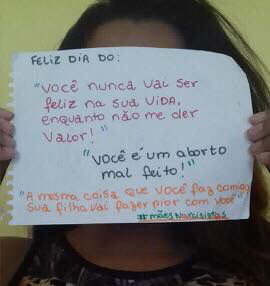 FELIZ DIA DO:
"Você nunca vai ser
feliz na sua vida,
enquanto não me der
valor!"
"Você é um aborto
mal feito!"
"A mesma coisa que você faz comigo
sua filha vai fazer pior com você"
#mãesNarcisistas